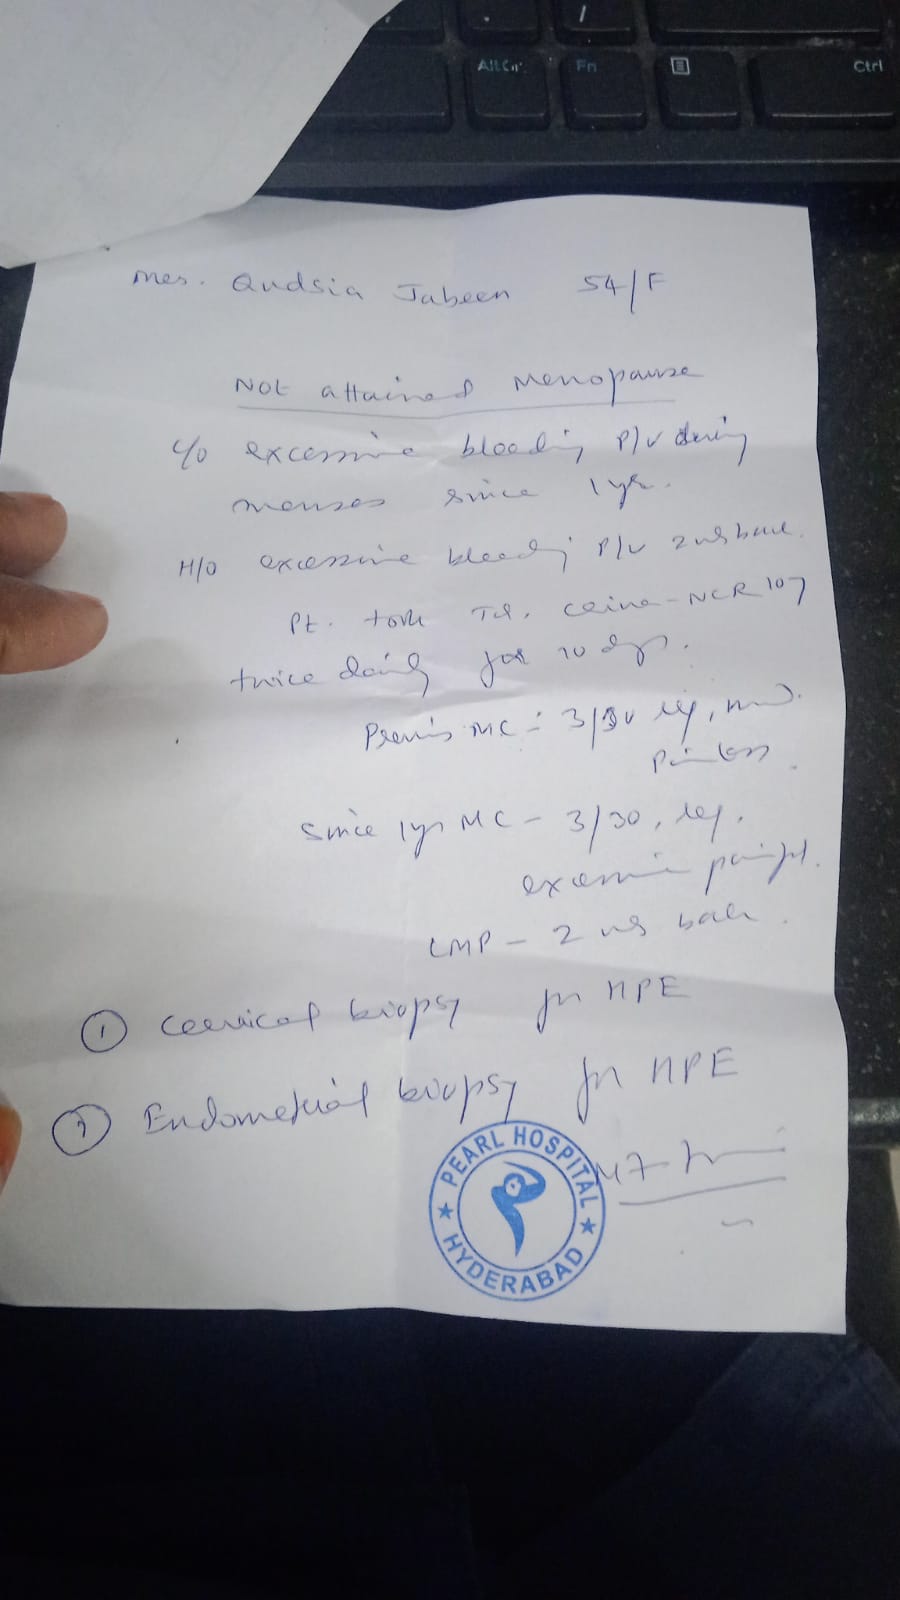 Alt Gr
Fn
Ctrl
/
Mrs. Qudsia Jabeen 54/F
Not attained Menopause
c/o excessive bleeding P/V during
menses since 1yr.
H/O excessive bleeding P/V 2 wks back.
Pt. took Tab. -NCR 10
twice daily for 10 days.
MC: 3/30 reg,
Painless.
since 1yr MC - 3/30, reg.
excessive painful.
LMP - 2 wks back.
① Cervical biopsy for HPE
② Endometrial biopsy for HPE
PEARL HOSPITAL
★ HYDERABAD ★